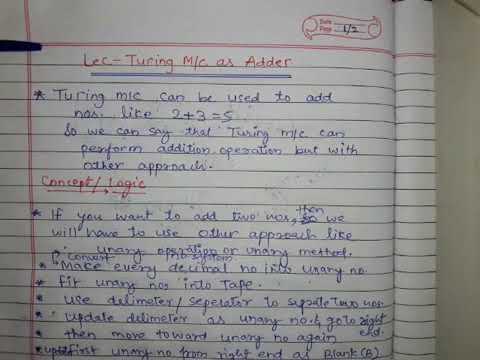 Date
Page 1/2
Lec - Turing M/c as Adder
* Turing m/c can be used to add
nos. like 2+3=5
So we can say that Turing m/c can
perform addition operation but with
other approach.
Concept/Logic
* If you want to add two nos, then we
will have to use other approach like
unary operation or unary method.
(convert no system.
* Make every decimal no into unary no.
* Fit unary nos into Tape.
* use delimeter/seperator to saprate two nos.
* update delimeter as unary no. & go to right
end.
* then move toward unary no again
* first unary no from right end as Blank (B)